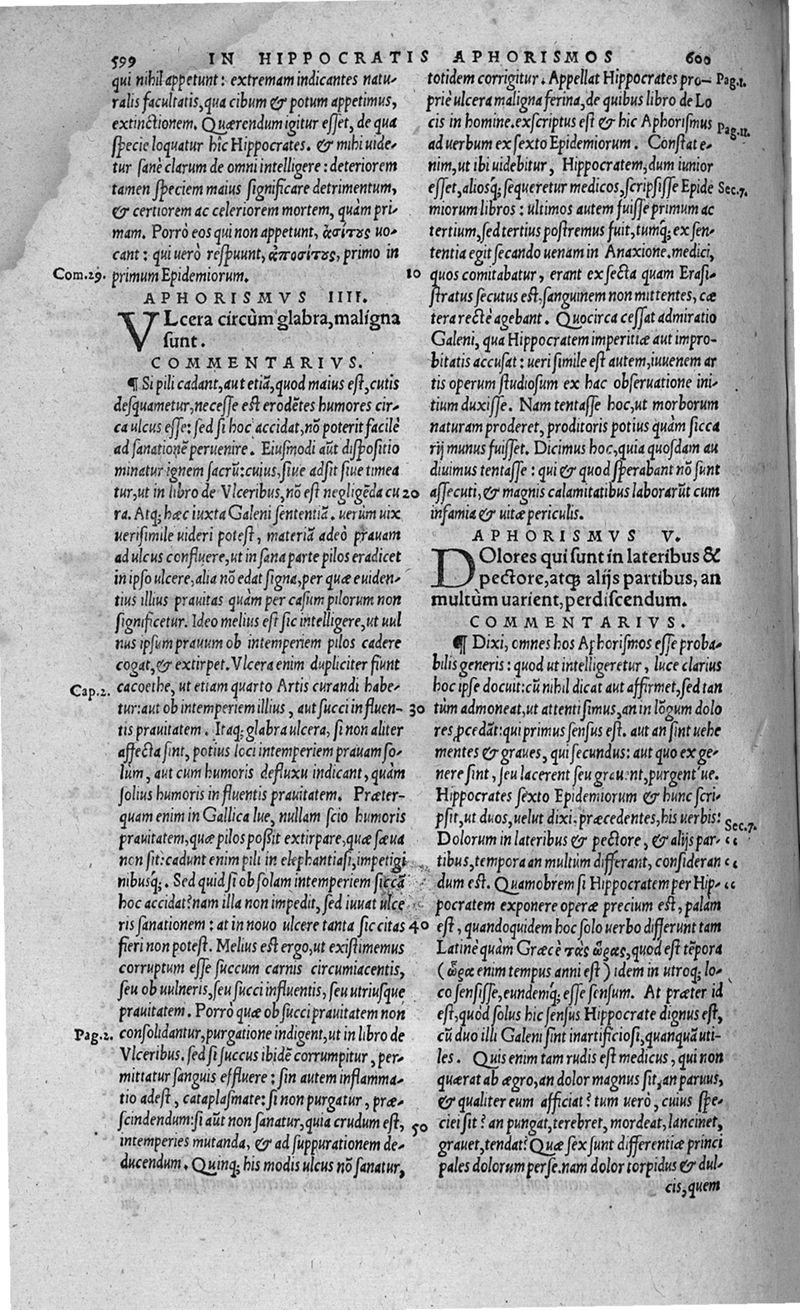 599 IN HIPPOCRATIS APHORISMOS 600
qui nihil appetunt: extremam indicantes natu-
ralis facultatis, qua cibum & potum appetimus,
extinctionem. Quærendum igitur esset, de qua
specie loquatur hîc Hippocrates. & mihi uide-
tur sanè clarum de omni intelligere: deteriorem
tamen speciem maius significare detrimentum,
& certiorem ac celeriorem mortem, quàm pri-
mam. Porrò eos qui non appetunt, ἀσίτους uo-
cant: qui uerò respuunt, ἀποσίτους, primo in
Com.29. primum Epidemiorum. 10
APHORISMVS IIII.
VLcera circùm glabra, maligna
sunt.
COMMENTARIVS.
¶ Si pili cadant, aut etiã, quod maius est, cutis
desquametur, necesse est erodẽtes humores cir-
ca ulcus esse: sed si hoc accidat, nõ poterit facilè
ad sanationẽ peruenire. Eiusmodi aũt dispositio
minatur ignem sacrũ: cuius, siue adsit siue timea
tur, ut in libro de Vlceribus, nõ est negligẽda cu 20
ra. Atq; hæc iuxta Galeni sententiã. uerùm uix
uerisimile uideri potest, materiã adeò prauam
ad ulcus confluere, ut in sana parte pilos eradicet
in ipso ulcere, alia nõ edat signa, per quæ euiden-
tius illius prauitas quàm per casum pilorum non
significetur. Ideo melius est sic intelligere, ut uul
nus ipsum prauum ob intemperiem pilos cadere
cogat, & extirpet. Vlcera enim dupliciter fiunt
Cap.2. cacoethe, ut etiam quarto Artis curandi habe-
tur: aut ob intemperiem illius, aut succi influen- 30
tis prauitatem. Itaq; glabra ulcera, si non aliter
affecta sint, potius loci intemperiem prauam so-
lùm, aut cum humoris defluxu indicant, quàm
solius humoris influentis prauitatem. Præter-
quam enim in Gallica lue, nullam scio humoris
prauitatem, quæ pilos possit extirpare, quæ sæua
non sit: cadunt enim pili in elephantiasi, impetigi
nibusq;. Sed quid si ob solam intemperiem siccã
hoc accidat? nam illa non impedit, sed iuuat ulce
ris sanationem: at in nouo ulcere tanta siccitas 40
fieri non potest. Melius est ergo, ut existimemus
corruptum esse succum carnis circumiacentis,
seu ob uulneris, seu succi influentis, seu utriusque
prauitatem. Porrò quæ ob succi prauitatem non
Pag.2. consolidantur, purgatione indigent, ut in libro de
Vlceribus. sed si succus ibidẽ corrumpitur, per-
mittatur sanguis effluere: sin autem inflamma-
tio adest, cataplasmate: si non purgatur, præ-
scindendum: si aũt non sanatur, quia crudum est,
intemperies mutanda, & ad suppurationem de- 50
ducendum. Quinq; his modis ulcus nõ sanatur,
totidem corrigitur. Appellat Hippocrates pro- Pag.1.
priè ulcera maligna ferina, de quibus libro de Lo
cis in homine. exscriptus est & hic Aphorismus Pag.11.
ad uerbum ex sexto Epidemiorum. Constat e-
nim, ut ibi uidebitur, Hippocratem, dum iunior
esset, aliosq; sequeretur medicos, scripsisse Epide Sec.7.
miorum libros: ultimos autem fuisse primum ac
tertium, sed tertius postremus fuit, tumq; ex sen-
tentia egit secando uenam in Anaxione. medici,
quos comitabatur, erant ex secta quam Erasi-
stratus secutus est. sanguinem non mittentes, cæ
tera rectè agebant. Quocirca cessat admiratio
Galeni, qua Hippocratem imperitiæ aut impro-
bitatis accusat: uerisimile est autem, iuuenem ar
tis operum studiosum ex hac obseruatione ini-
tium duxisse. Nam tentasse hoc, ut morborum
naturam proderet, proditoris potius quàm sicca
rij munus fuisset. Dicimus hoc, quia quosdam au
diuimus tentasse: qui & quod sperabant nõ sunt
assecuti, & magnis calamitatibus laborarũt cum
infamia & uitæ periculis.
APHORISMVS V.
DOlores qui sunt in lateribus &
pectore, atq; alijs partibus, an
multùm uarient, perdiscendum.
COMMENTARIVS.
¶ Dixi, omnes hos Aphorismos esse proba-
bilis generis: quod ut intelligeretur, luce clarius
hoc ipse docuit: cũ nihil dicat aut affirmet, sed tan
tùm admoneat, ut attentisimus, an in lõgum dolo
res procedãt: qui primus sensus est. aut an sint uehe
mentes & graues, qui secundus: aut quo ex ge-
nere sint, seu lacerent seu grauent, purgent ue.
Hippocrates sexto Epidemiorum & hunc scri-
psit, ut duos, uelut dixi, præcedentes, his uerbis: Sec.7.
Dolorum in lateribus & pectore, & alijs par- “
tibus, tempora an multùm differant, consideran “
dum est. Quamobrem si Hippocratem per Hip- “
pocratem exponere operæ precium est, palàm
est, quandoquidem hoc solo uerbo differunt tam
Latinè quàm Græcè τὰς ὥρας, quod est tẽpora
(ὥρα enim tempus anni est) idem in utroq; lo-
co sensisse, eundemq; esse sensum. At præter id
est, quòd solus hic sensus Hippocrate dignus est,
cũ duo illi Galeni sint inartificiosi, quanquã uti-
les. Quis enim tam rudis est medicus, qui non
quærat ab ægro, an dolor magnus sit, an paruus,
& qualiter eum afficiat? tum uerò, cuius spe-
ciei sit? an pungat, terebret, mordeat, lancinet,
grauet, tendat? Quæ sex sunt differentiæ princi
pales dolorum per se. nam dolor torpidus & dul-
cis, quem